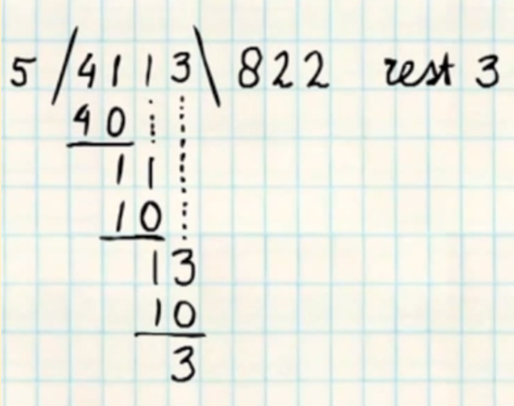 5 / 4113 \ 822 rest 3
40
11
10
13
10
3